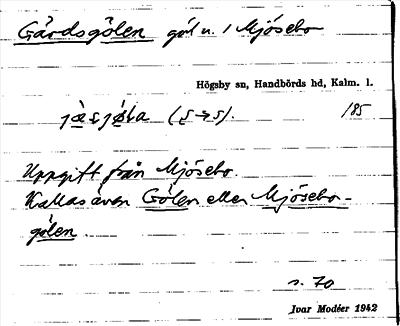 Gårdsgölen göl u. / Mjösebo
Högsby sn, Handbörds hd, Kalm. l.
(s→s). 185
Uppgift från Mjösebo.
Kallas även Gölen eller Mjösebo-
gölen.
s. 70
Ivar Modéer 1942